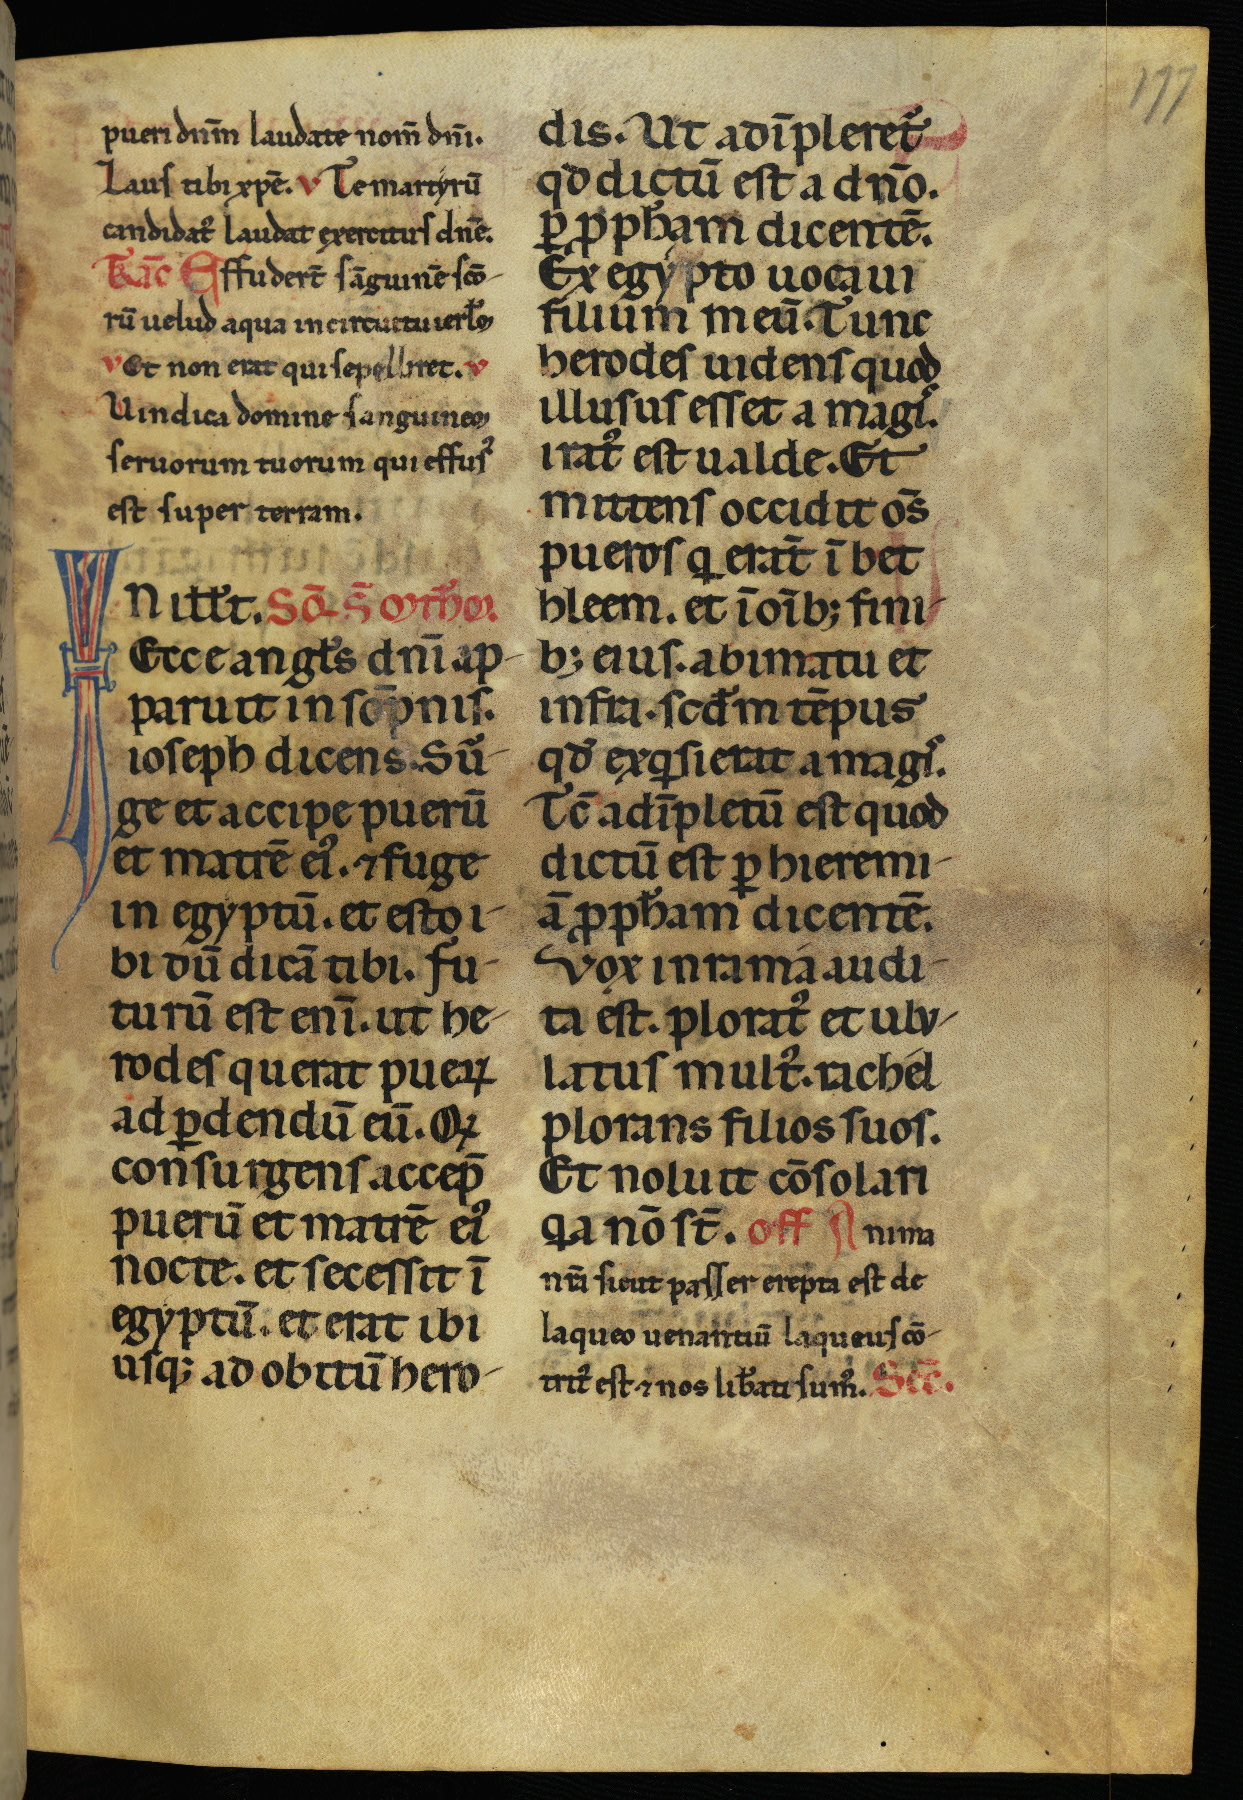 177
pueri dnm̄ laudate nom̄ dn̄i.
Laus tibi xp̄e. v Te martyrū
candidat᷒ laudat exercitus dn̄e.
Trāc Effudert̄ sāguinē scō-
rū uelud aqua in circuitu ierl̄m
v Et non erat qui sepelliret. v
Uindica domine sanguinem
seruorum tuorum qui effus᷒
est super terram.
IN ill̄t. Scd̄ S̄ Math̄m.
Ecce angl̄s dn̄i ap-
paruit in sōpnis.
ioseph dicens. Sur̄-
ge et accipe puerū
et matrē ei᷒. ⁊ fuge
in egyptū. et esto i-
bi dū dicā tibi. Fu-
turū est enī. ut he-
rodes querat pueꝝ
ad ꝑdendū eū. Qi
consurgens accep̄
puerū et matrē ei᷒
nocte. et secessit ī
egyptū. et erat ibi
usq; ad obitū hero-
dis. Ut adīpleret᷒
qd̄ dictū est a dn̄o.
ꝑ ꝓph̄am dicentē.
Ex egypto uocaui
filium meū. Tunc
herodes uidens quod
illusus esset a magis.
irat᷒ est ualde. Et
mittens occidit om̄s
pueros q erāt ī bet
hleem. et ī oīb; fini-
b; eius. a bimatu et
infra. scd̄m tēpus
qd̄ exqsierat a magis.
Tc̄ adīpletū est quod
dictū est ꝑ hieremi-
ā ꝓph̄am dicentē.
Vox in rama audi-
ta est. plorat᷒ et ulu-
latus mult᷒. rachel
plorans filios suos.
Et noluit cōsolari
qa nō st̄. off Anima
nr̄a sicut passer erepta est de
laqueo uenantiū laqueus cō-
trit᷒ est ⁊ nos lib̄ati sum᷒. Sec̄.